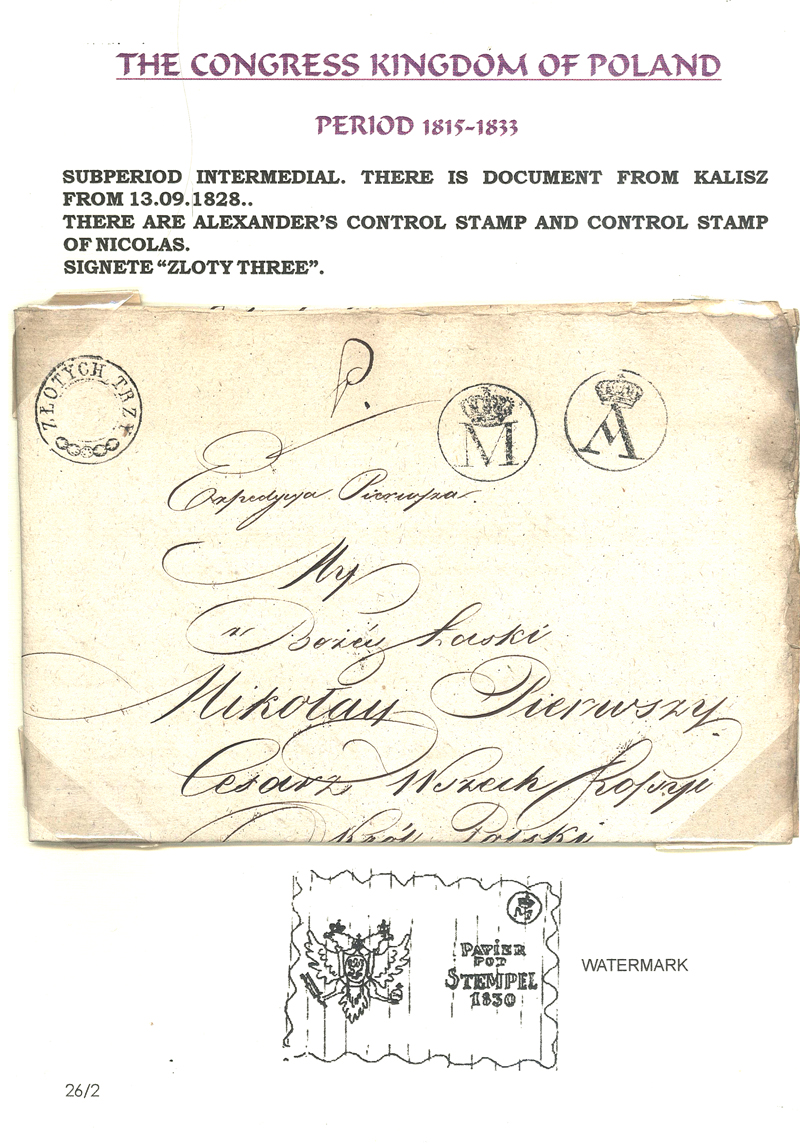 THE CONGRESS KINGDOM OF POLAND
PERIOD 1815-1833
SUBPERIOD INTERMEDIAL. THERE IS DOCUMENT FROM KALISZ
FROM 13.09.1828..
THERE ARE ALEXANDER'S CONTROL STAMP AND CONTROL STAMP
OF NICOLAS.
SIGNETE "ZLOTY THREE".
ZŁOTYCH TRZY
P.
M
A
Expedycya Pierwsza.
My
z Bożey Łaski
Mikołay Pierwszy
Cesarz Wszech Rossyi
Król Polski
PAPIER
POD
STEMPEL
1830
WATERMARK
26/2